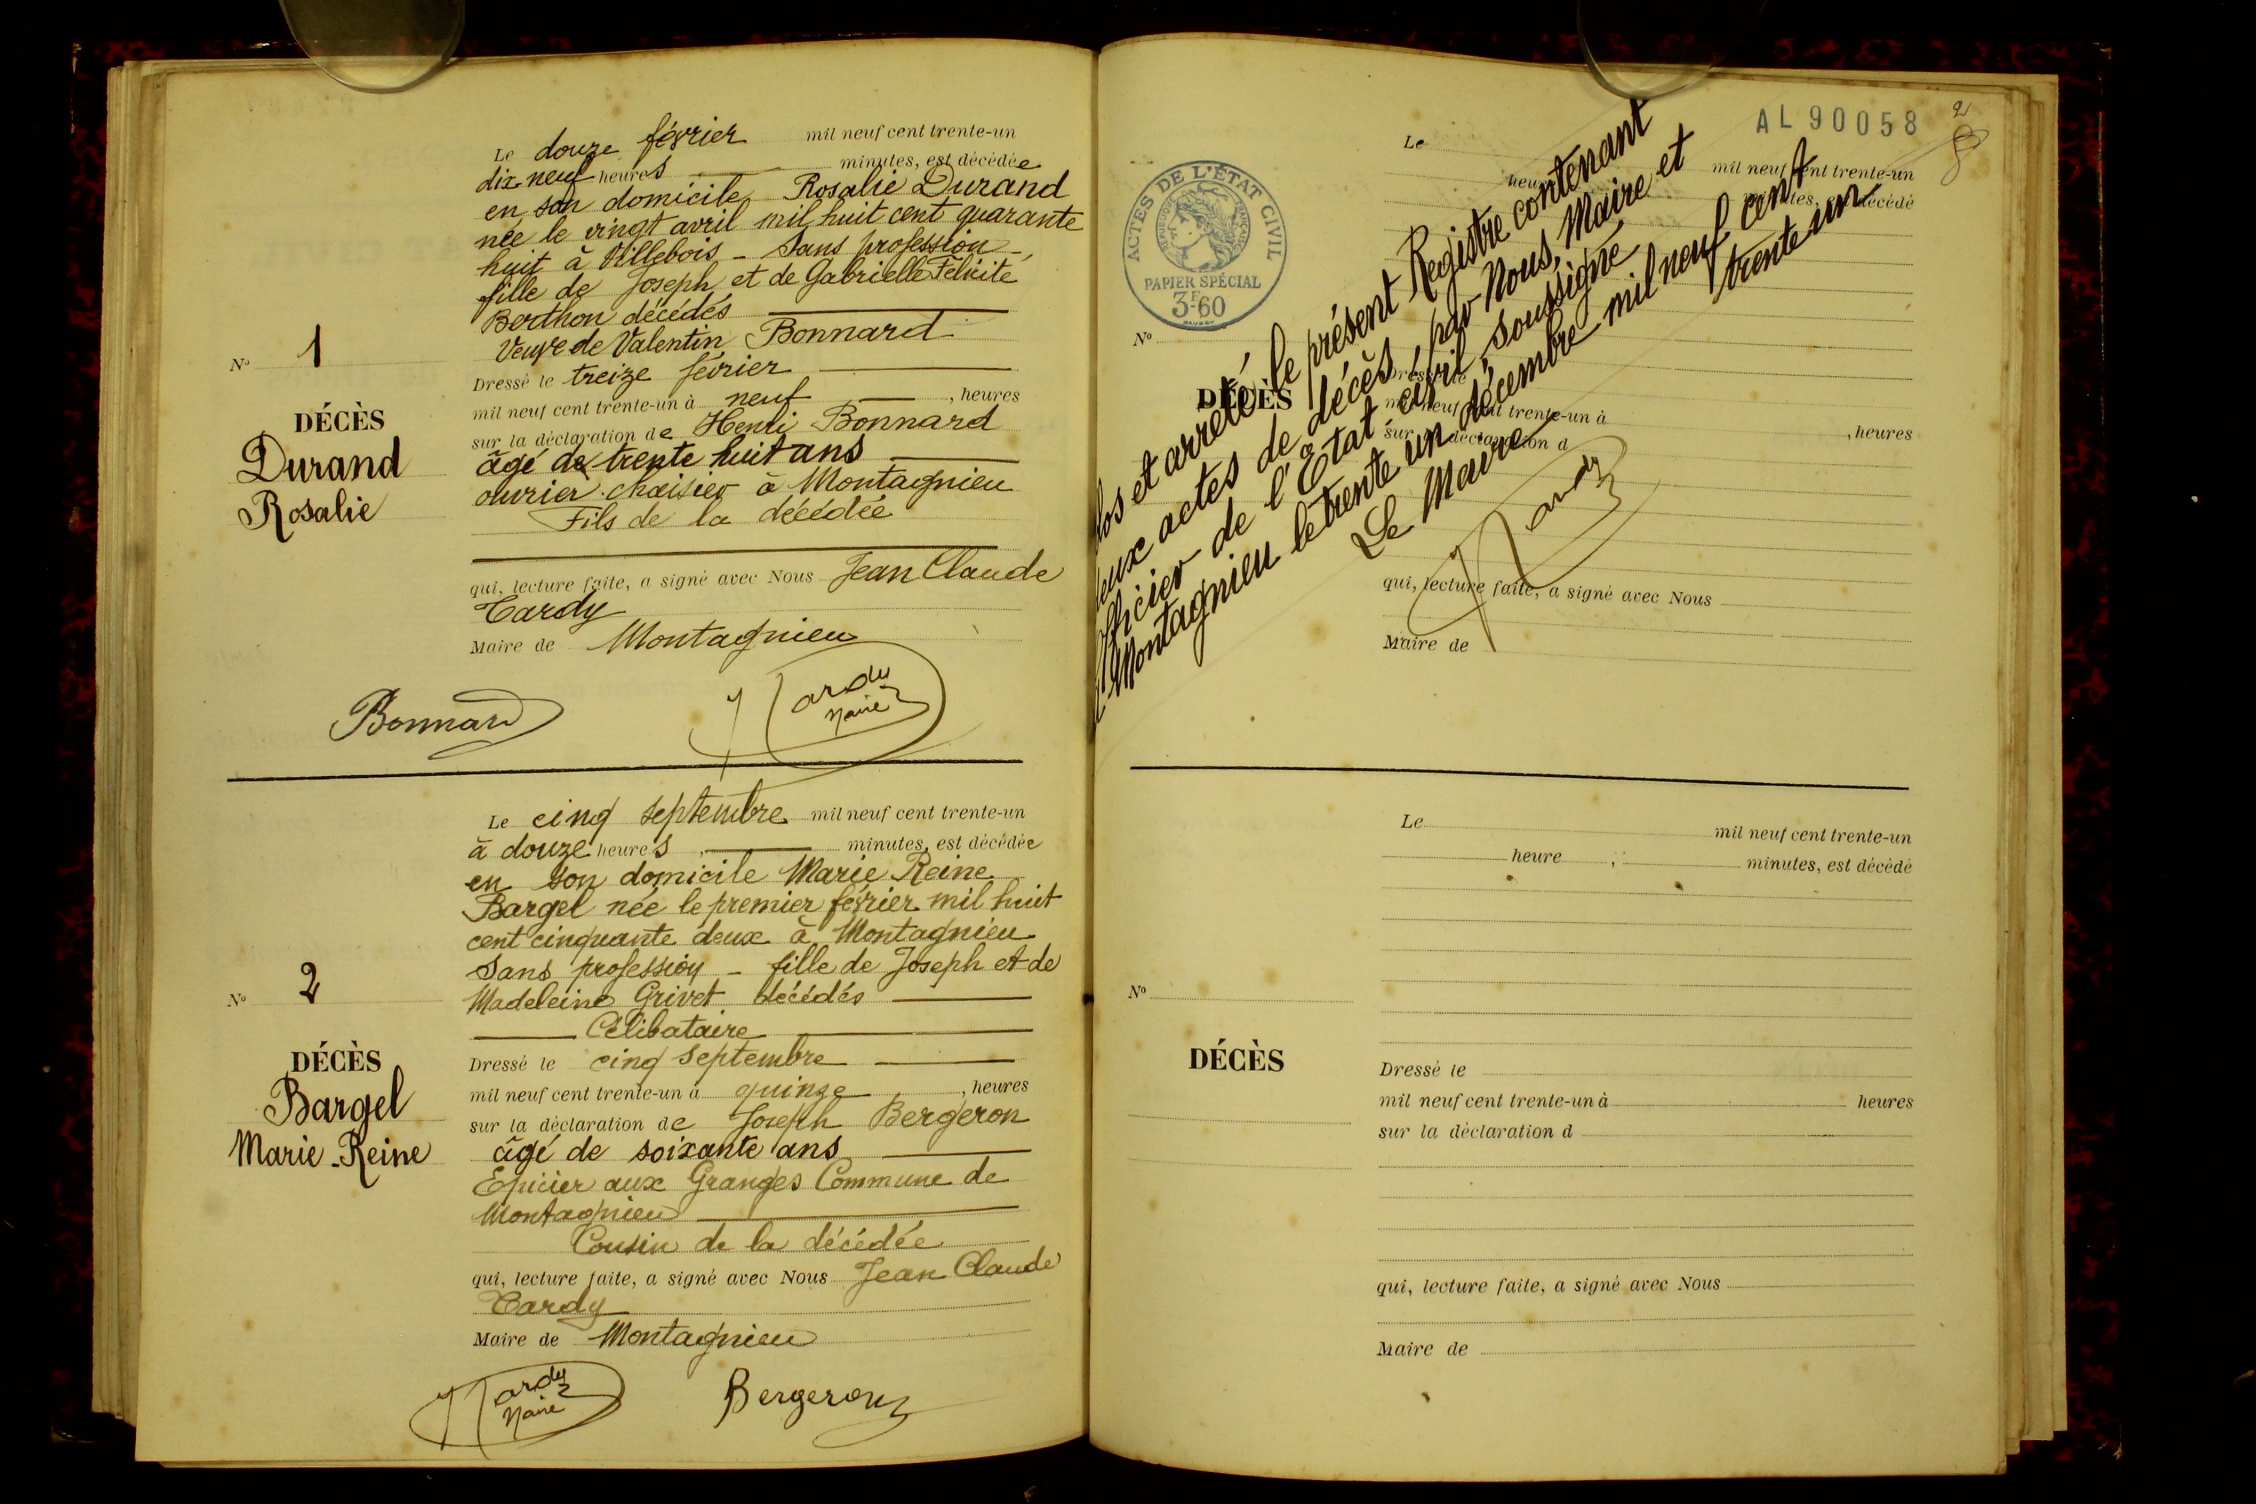 Le douze février mil neuf cent trente-un
dix-neuf heures minutes, est décédée
en son domicile Rosalie Durand
née le vingt avril mil huit cent quarante
huit à Villebois - Sans profession -
fille de Joseph et de Gabrielle Félicité
Berthon décédés
Veuve de Valentin Bonnard
N° 1
DÉCÈS
Durand
Rosalie
Dressé le treize février
mil neuf cent trente-un à neuf , heures
sur la déclaration de Henri Bonnard
âgé de trente huit ans
ouvrier chaisier à Montagnieu
Fils de la décédée
qui, lecture faite, a signé avec Nous Jean Claude
Tardy
Maire de Montagnieu
Bonnard
J Tardy
Maire
Le cinq septembre mil neuf cent trente-un
à douze heures , minutes, est décédée
en son domicile Marie Reine
Bargel née le premier février mil huit
cent cinquante deux à Montagnieu
Sans profession - fille de Joseph et de
Madeleine Grivet décédés
Célibataire
N° 2
DÉCÈS
Bargel
Marie-Reine
Dressé le cinq septembre
mil neuf cent trente-un à quinze , heures
sur la déclaration de Joseph Bergeron
âgé de soixante ans
Epicier aux Granges Commune de
Montagnieu
Cousin de la décédée
qui, lecture faite, a signé avec Nous Jean Claude
Tardy
Maire de Montagnieu
J Tardy
Maire
Bergeron
AL 90058
2
ACTES DE L'ÉTAT CIVIL
RÉPUBLIQUE FRANÇAISE
PAPIER SPÉCIAL
3F.60
Le mil neuf cent trente-un
heure minutes, est décédé
N°
DÉCÈS
Dressé le
mil neuf cent trente-un à , heures
sur la déclaration d
qui, lecture faite, a signé avec Nous
Maire de
et arrêté le présent Registre contenant
deux actes de décès, par Nous, Maire et
Officier de l'Etat-civil, soussigné
Montagnieu le trente un décembre mil neuf cent
trente un
Le Maire
J Tardy
Le mil neuf cent trente-un
heure , minutes, est décédé
N°
DÉCÈS
Dressé le
mil neuf cent trente-un à heures
sur la déclaration d
qui, lecture faite, a signé avec Nous
Maire de